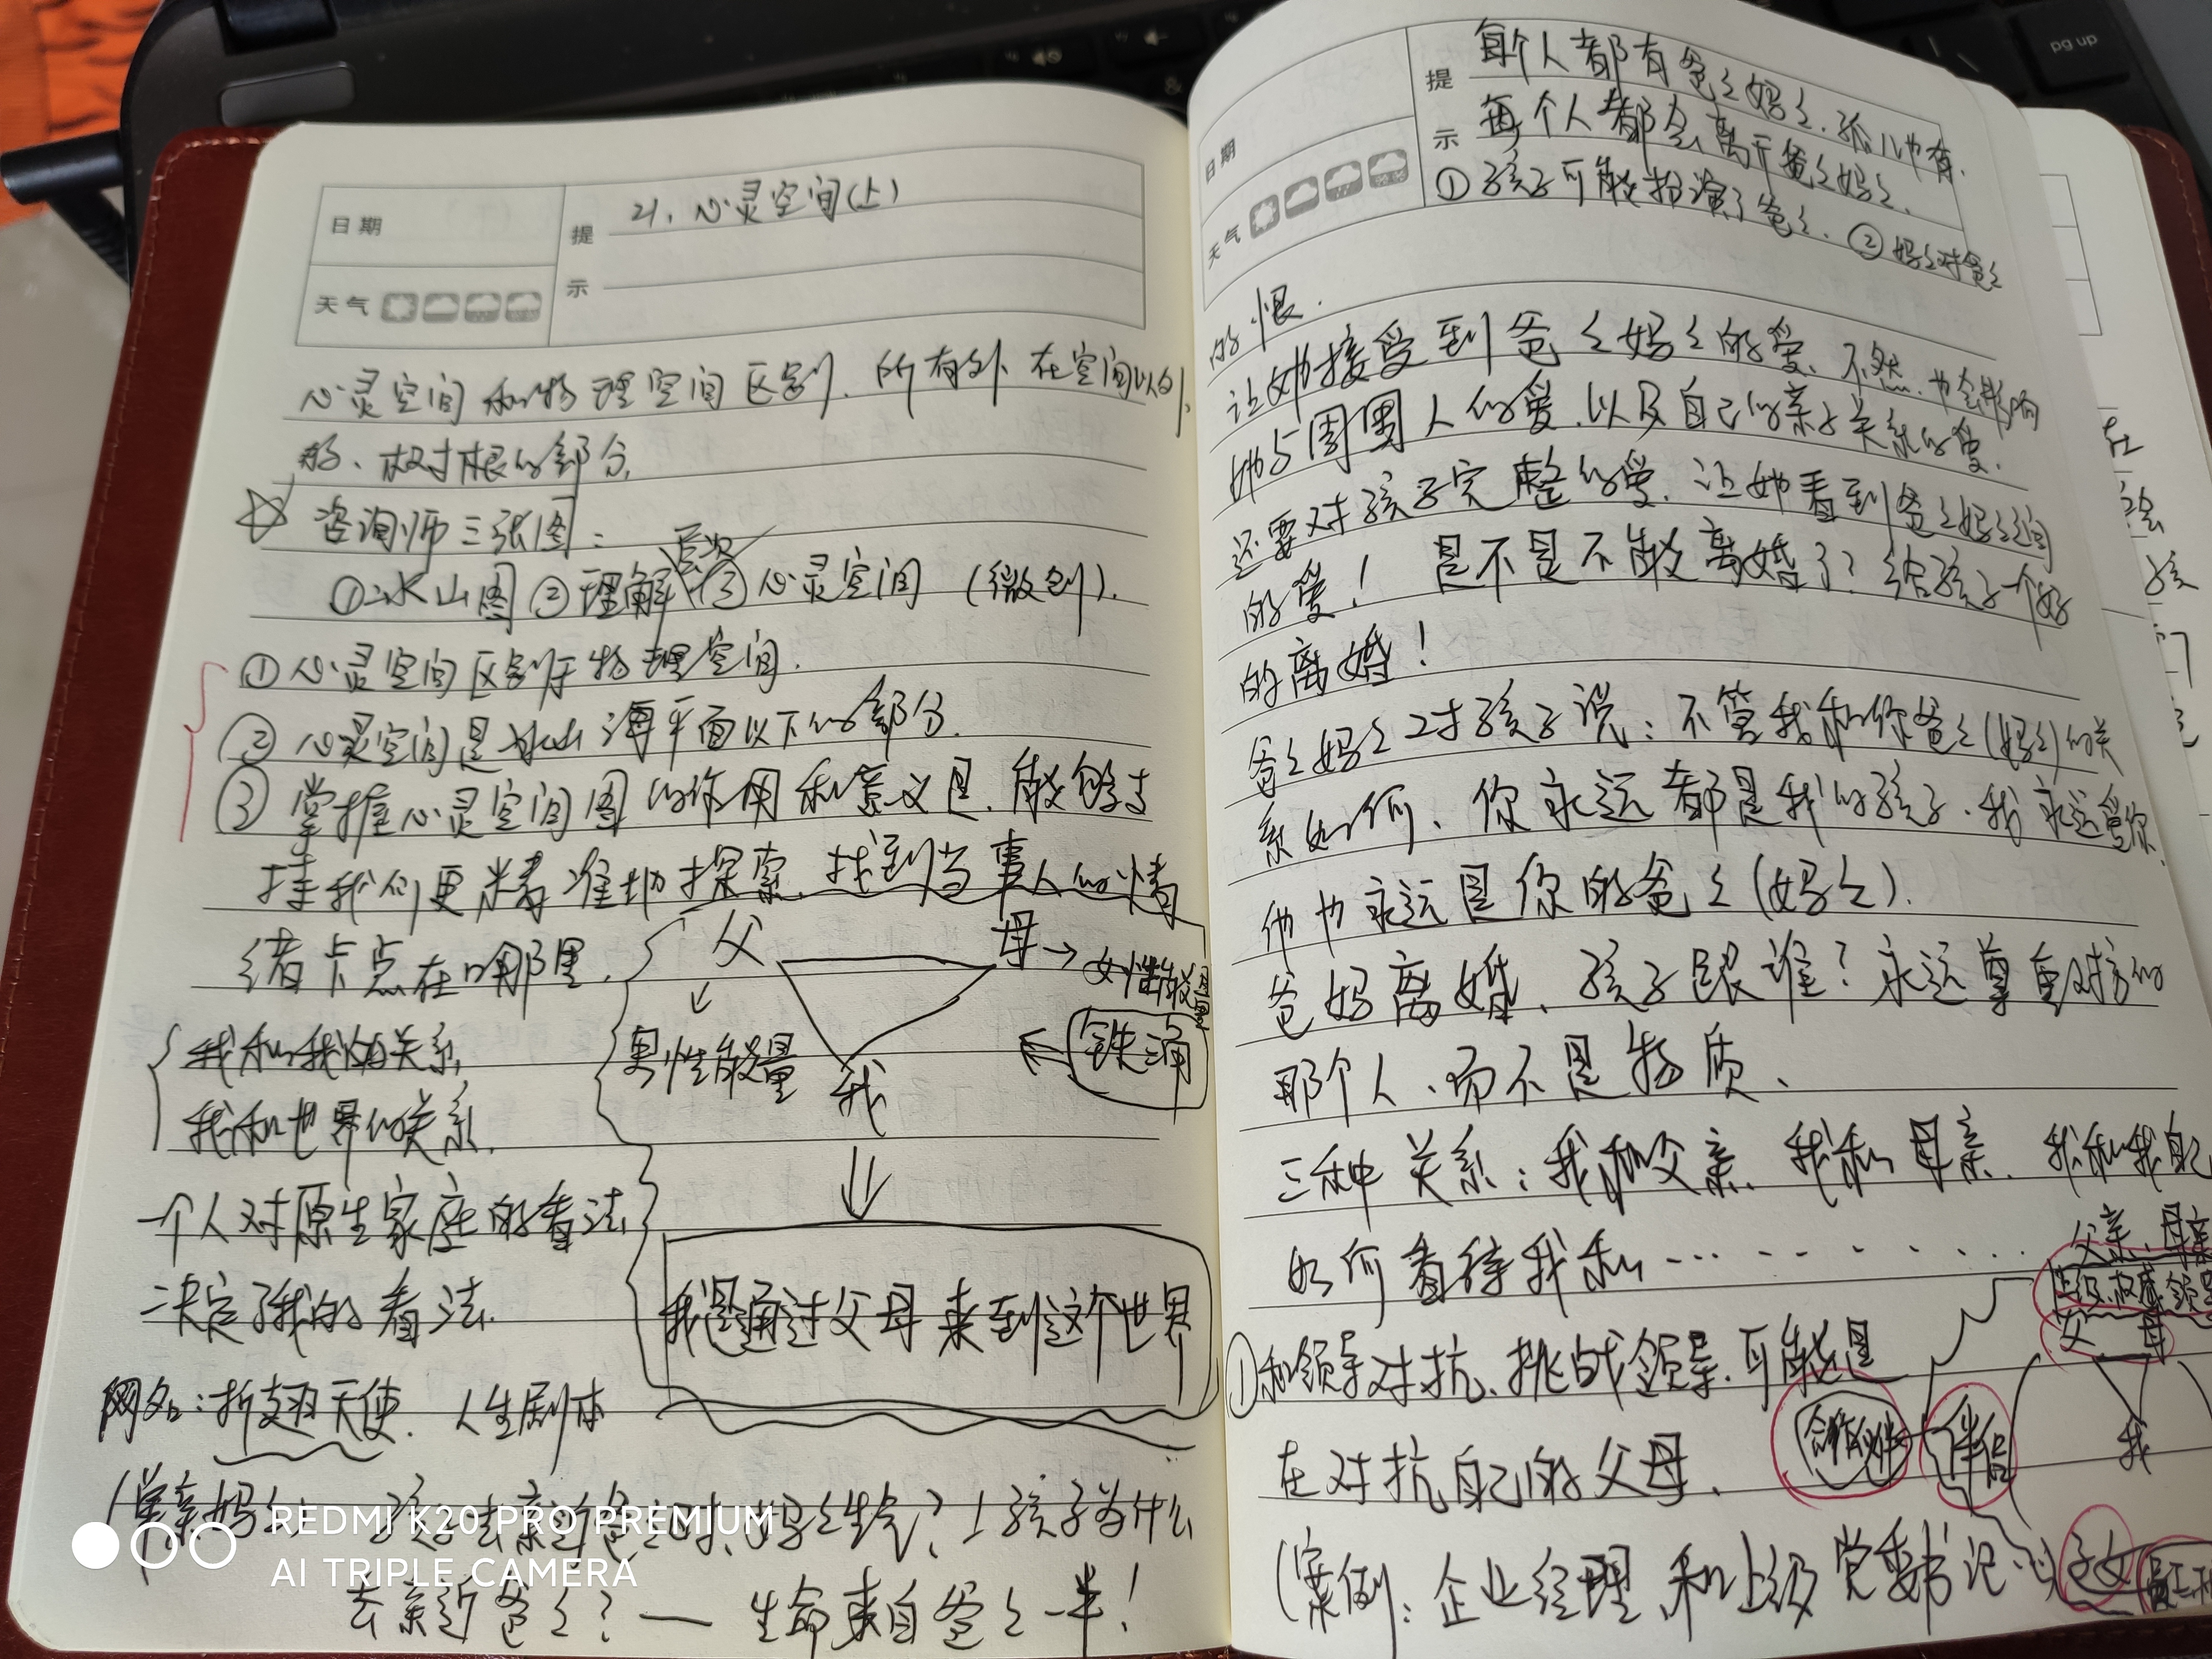 日期
提示
天气
21. 心灵空间(上)
心灵空间和物理空间区别. 所有外在空间以外
的、极才根的部分,
☆ 咨询师三张图:
①冰山图 ②理解层次 ③心灵空间 (微刻).
①心灵空间区别于物理空间.
②心灵空间是冰山海平面以下的部分.
③掌握心灵空间图的作用和意义是, 能够支
持我们更精准地探索、找到当事人的情
绪卡点在哪里.
父
母→女性能量
男性能量
我
铁三角
我和我的关系
我和世界的关系.
一个人对原生家庭的看法
决定了我的看法.
我是通过父母来到这个世界
网名:折翅天使. 人生剧本
(单亲妈
妈生气?
孩子为什么
去亲近爸爸? — 生命来自爸爸一半!
REDMI K20 PRO PREMIUM
AI TRIPLE CAMERA
日期
提示
天气
每个人都有爸爸妈妈、孤儿也有.
每个人都会离开爸爸妈妈.
①孩子可能扮演了爸爸. ②妈妈对爸爸
的恨.
让她接受到爸爸妈妈的爱、不然、也会影响
她与周围人的爱、以及自己的亲子关系的爱.
还要对孩子完整的爱、让她看到爸爸妈妈间
的爱! 是不是不能离婚了? 给孩子一个好
的离婚!
爸爸妈妈对孩子说:不管我和你爸爸(妈妈)的关
系如何、你永远都是我的孩子、我永远爱你.
他也永远是你的爸爸(妈妈).
爸妈离婚、孩子跟谁? 永远尊重对方的
那个人、而不是物质、
三种关系:我和父亲、我和母亲、我和我自己
如何看待我和………… 父亲、母亲
上级.权威.领导
父 母
我
①和领导对抗、挑战领导、可能是
在对抗自己的父母.
合作伙伴
伴侣
(案例:企业经理和上级党委书记
子女
pg up